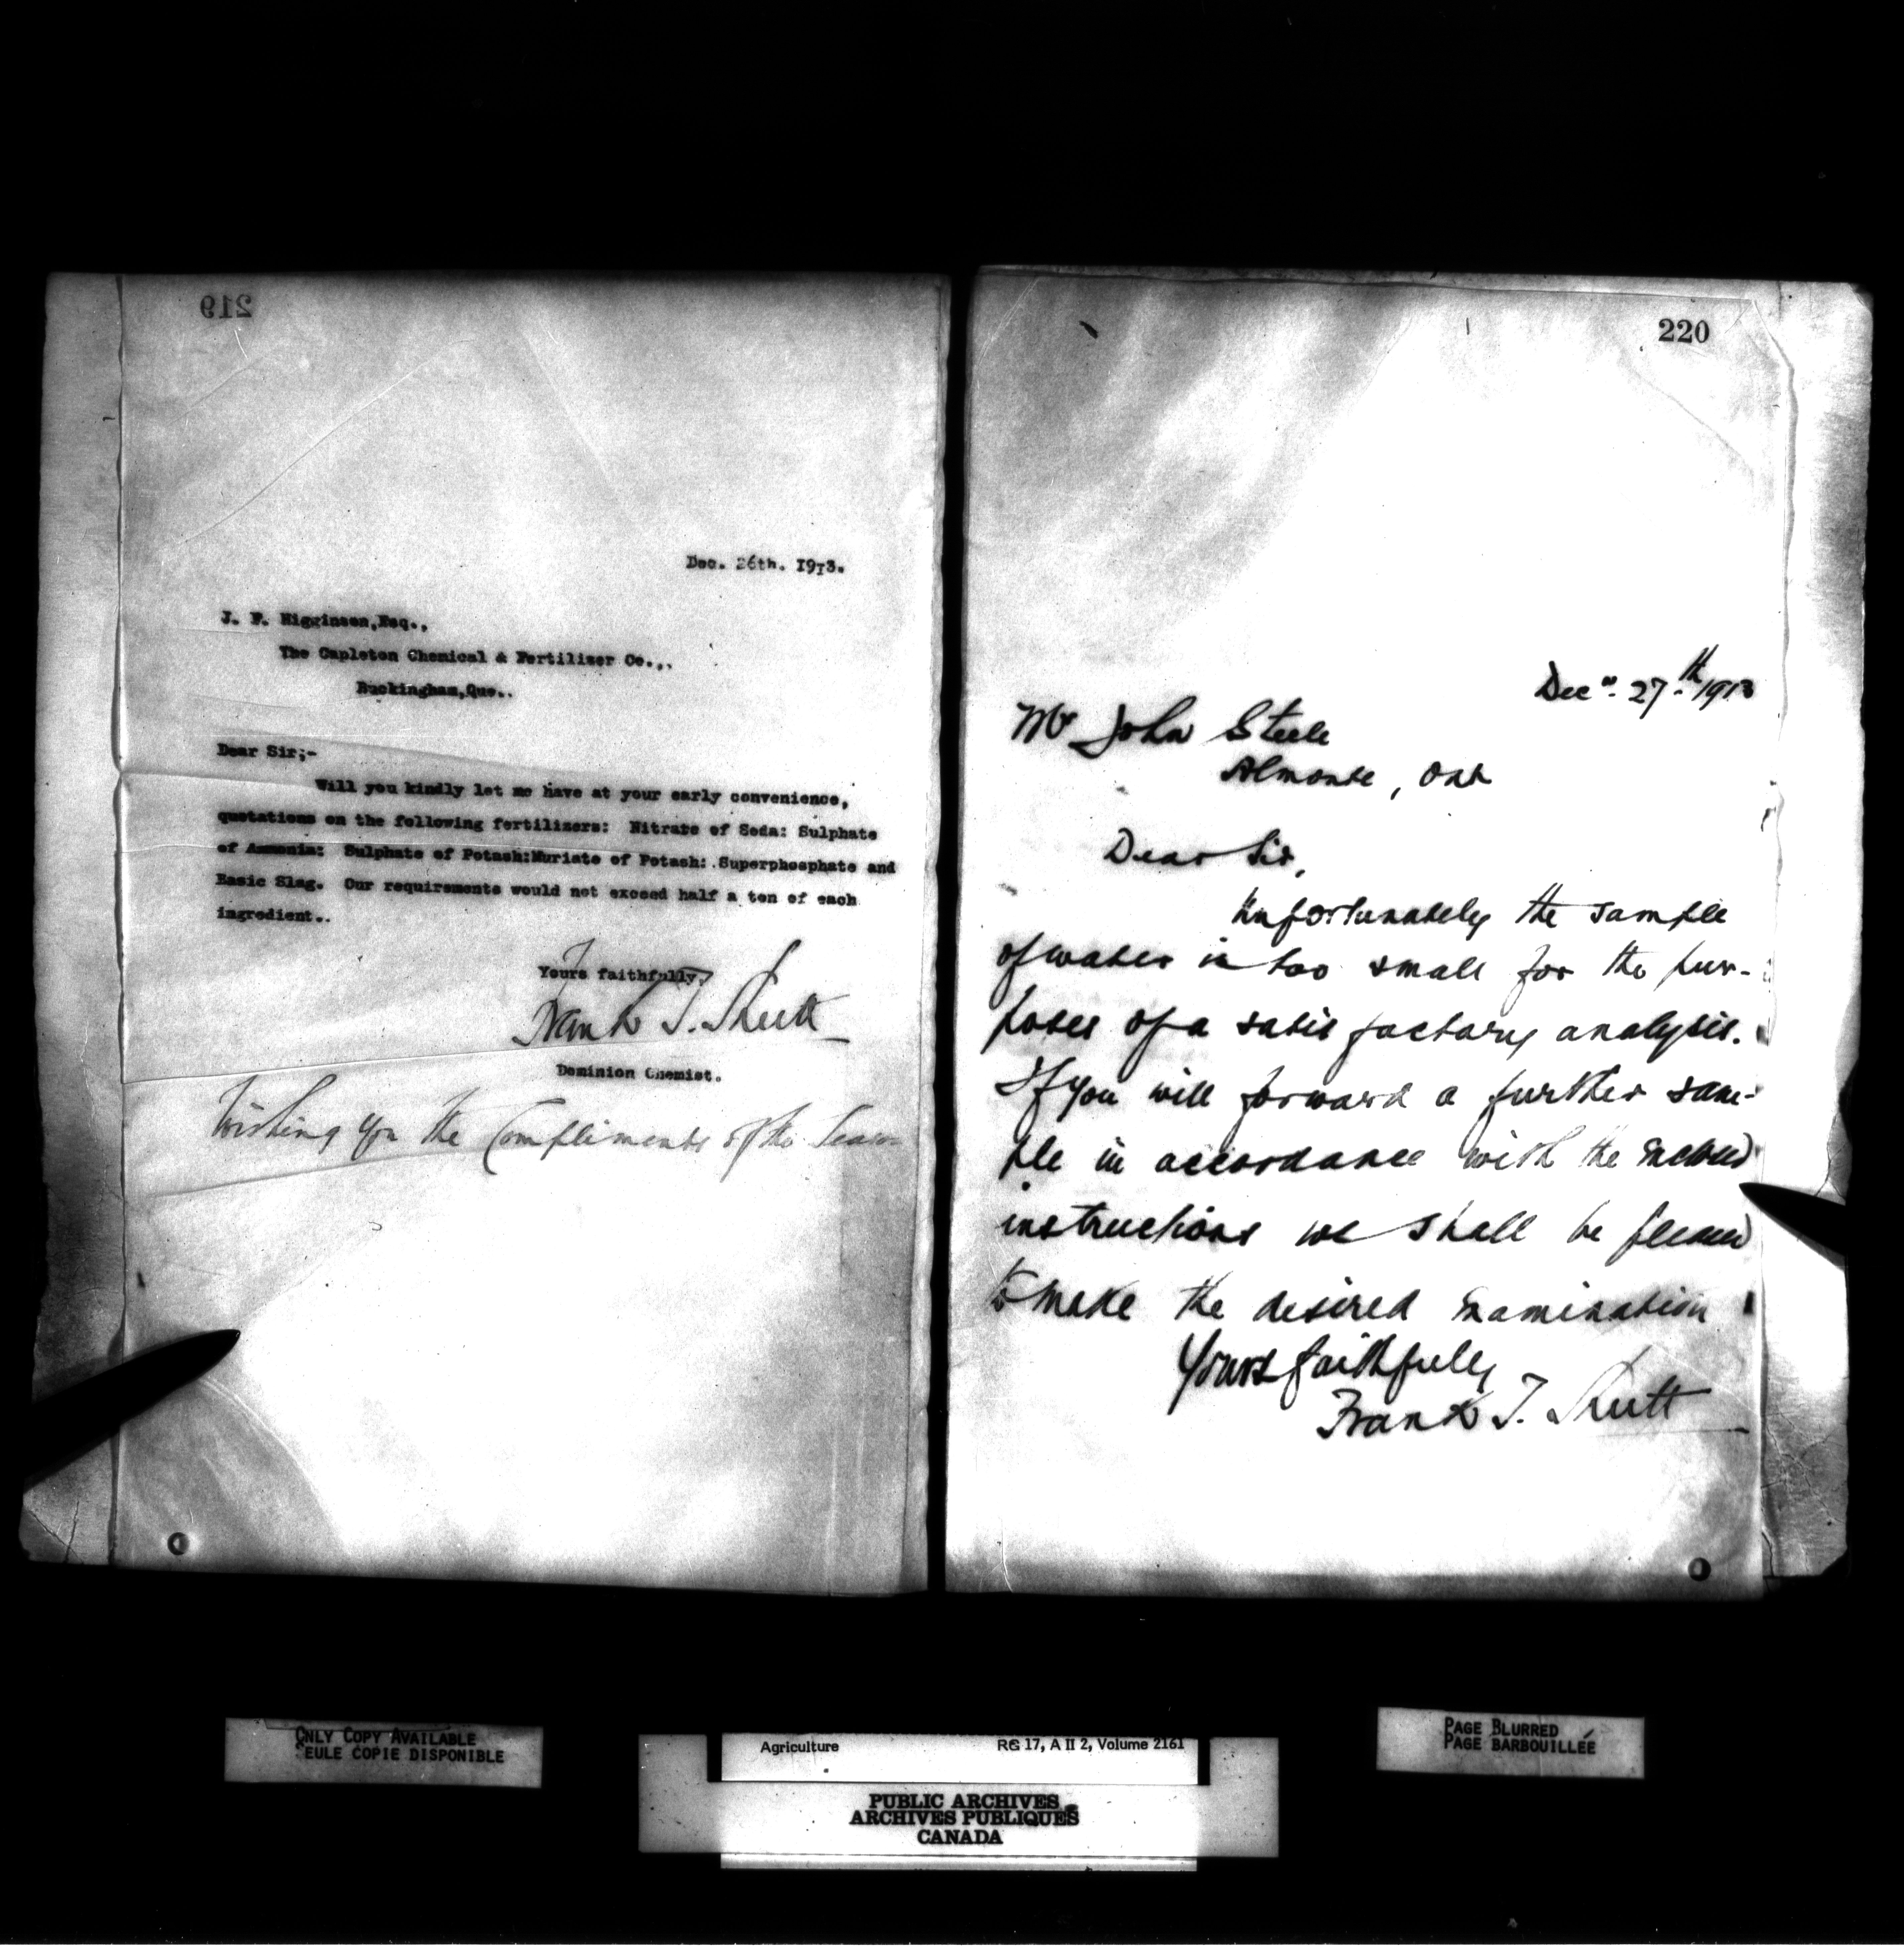 219
Dec. 26th. 1913.
J. F. Higginson,Esq.,
The Capleton Chemical & Fertilizer Co.,.
Buckingham,Que..
Dear Sir;-
Will you kindly let me have at your early convenience,
quotations on the following fertilizers: Nitrate of Soda: Sulphate
of Ammonia: Sulphate of Potash:Muriate of Potash: .Superphosphate and
Basic Slag. Our requirements would not exceed half a ton of each
ingredient..
Yours faithfully,
Frank T. Shutt
Dominion Chemist.
Wishing you the Compliments of the Season
220
Decr. 27.th 1913
Mr John Steele
Almonte, Ont
Dear Sir,
Unfortunately the sample
of water is too small for the pur-
poses of a satisfactory analysis.
If you will forward a further sam-
ple in accordance with the enclosed
instructions we shall be pleased
to make the desired examination
Yours faithfully
Frank T. Shutt
ONLY COPY AVAILABLE
SEULE COPIE DISPONIBLE
Agriculture RG 17, A II 2, Volume 2161
PUBLIC ARCHIVES
ARCHIVES PUBLIQUES
CANADA
PAGE BLURRED
PAGE BARBOUILLÉE